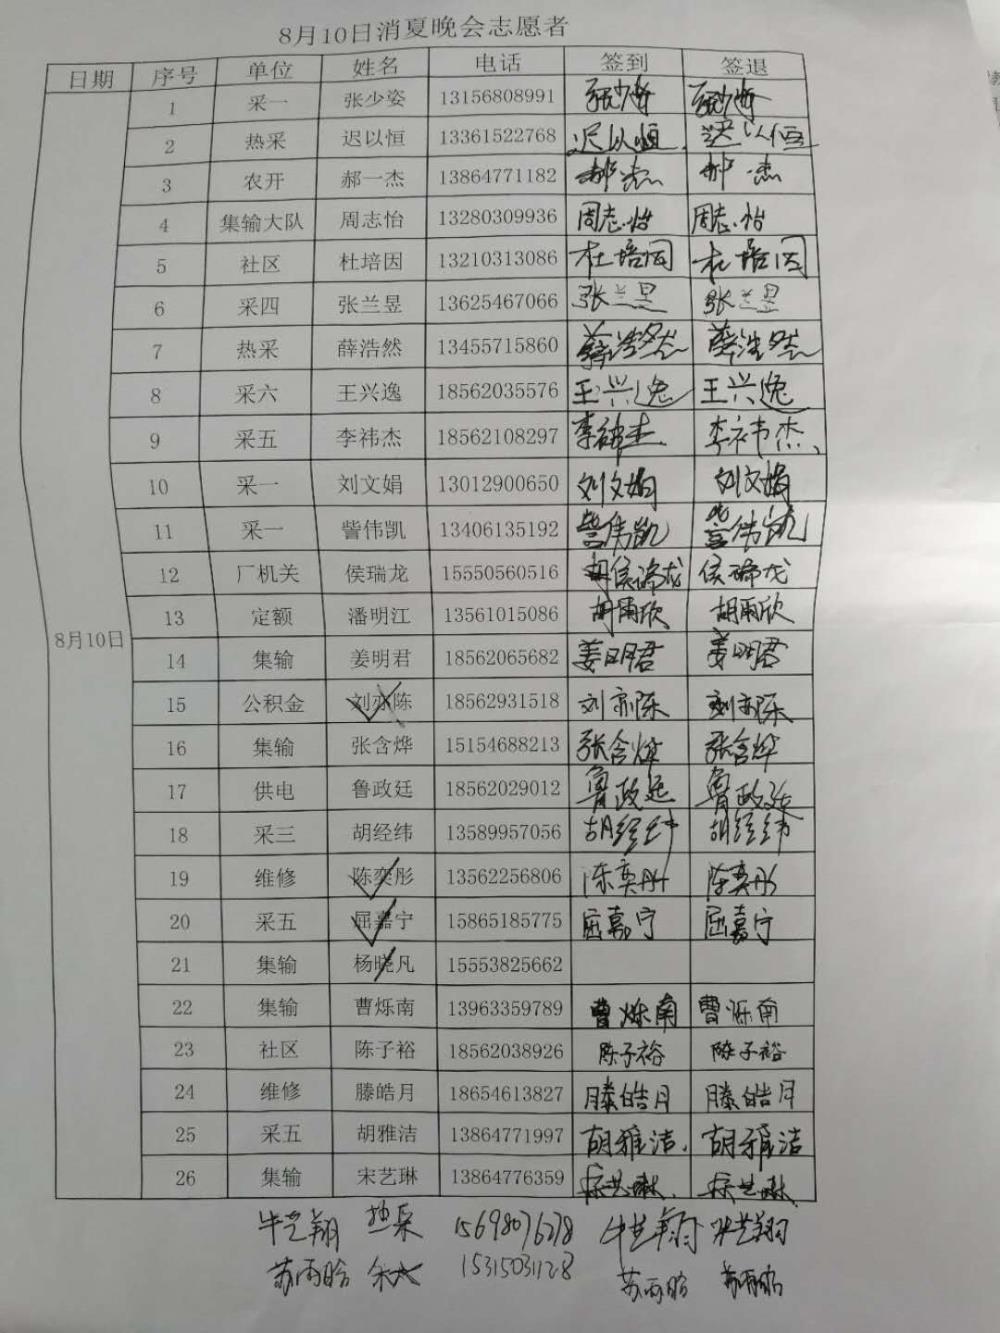 8月10日消夏晚会志愿者
日期 序号 单位 姓名 电话 签到 签退
1 采一 张少姿 13156808991 张少姿 张少姿
2 热采 迟以恒 13361522768 迟以恒 迟以恒
3 农开 郝一杰 13864771182 郝一杰 郝一杰
4 集输大队 周志怡 13280309936 周志怡 周志怡
5 社区 杜培因 13210313086 杜培因 杜培因
6 采四 张兰昱 13625467066 张兰昱 张兰昱
7 热采 薛浩然 13455715860 薛浩然 薛浩然
8 采六 王兴逸 18562035576 王兴逸 王兴逸
9 采五 李祎杰 18562108297 李祎杰 李祎杰
10 采一 刘文娟 13012900650 刘文娟 刘文娟
11 采一 訾伟凯 13406135192 訾伟凯 訾伟凯
12 厂机关 侯瑞龙 15550560516 侯瑞龙 侯瑞龙
13 定额 潘明江 13561015086 胡雨欣 胡雨欣
8月10日
14 集输 姜明君 18562065682 姜明君 姜明君
15 公积金 刘亦陈 18562931518 刘亦陈 刘亦陈
16 集输 张含烨 15154688213 张含烨 张含烨
17 供电 鲁政廷 18562029012 鲁政廷 鲁政廷
18 采三 胡经纬 13589957056 胡经纬 胡经纬
19 维修 陈奕彤 13562256806 陈奕彤 陈奕彤
20 采五 屈嘉宁 15865185775 屈嘉宁 屈嘉宁
21 集输 杨晓凡 15553825662
22 集输 曹烁南 13963359789 曹烁南 曹烁南
23 社区 陈子裕 18562038926 陈子裕 陈子裕
24 维修 滕皓月 18654613827 滕皓月 滕皓月
25 采五 胡雅洁 13864771997 胡雅洁 胡雅洁
26 集输 宋艺琳 13864776359 宋艺琳 宋艺琳
牛艺翔 热采 15698076278 牛艺翔 牛艺翔
苏雨晗 15315031128 苏雨晗 苏雨晗